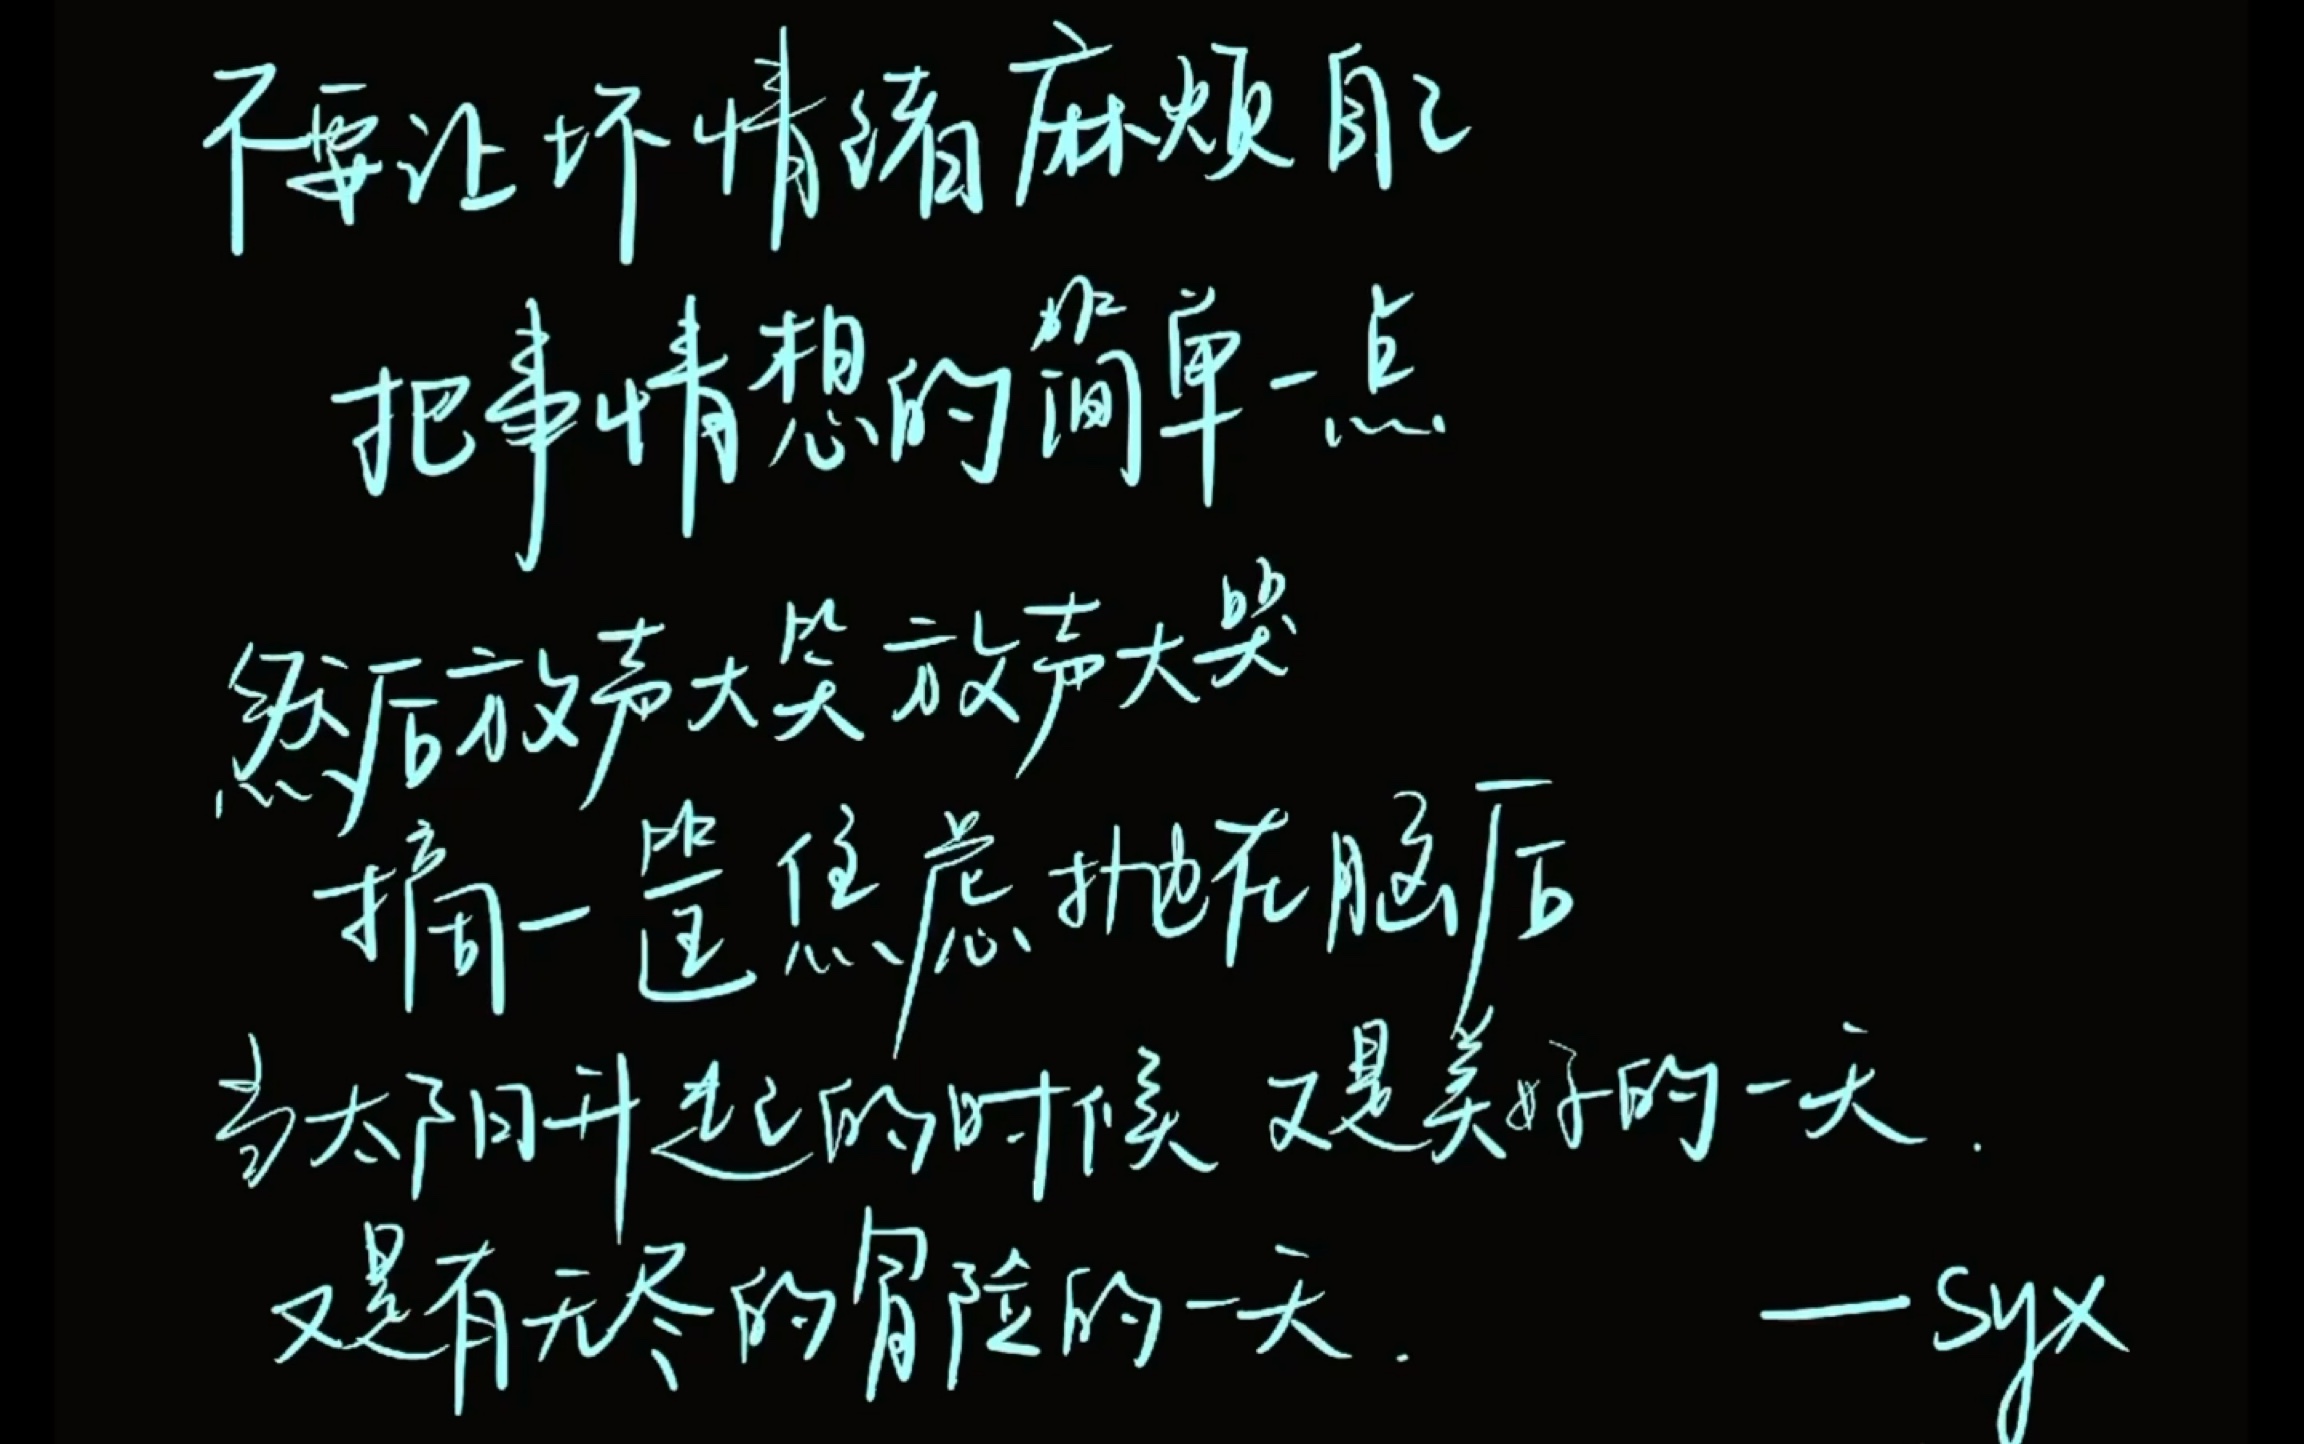 不要让坏情绪麻烦自己
把事情想的简单一点
然后放声大笑放声大哭
摘一筐焦虑抛在脑后
当太阳升起的时候 又是美好的一天.
又是有无尽的冒险的一天.
—syx